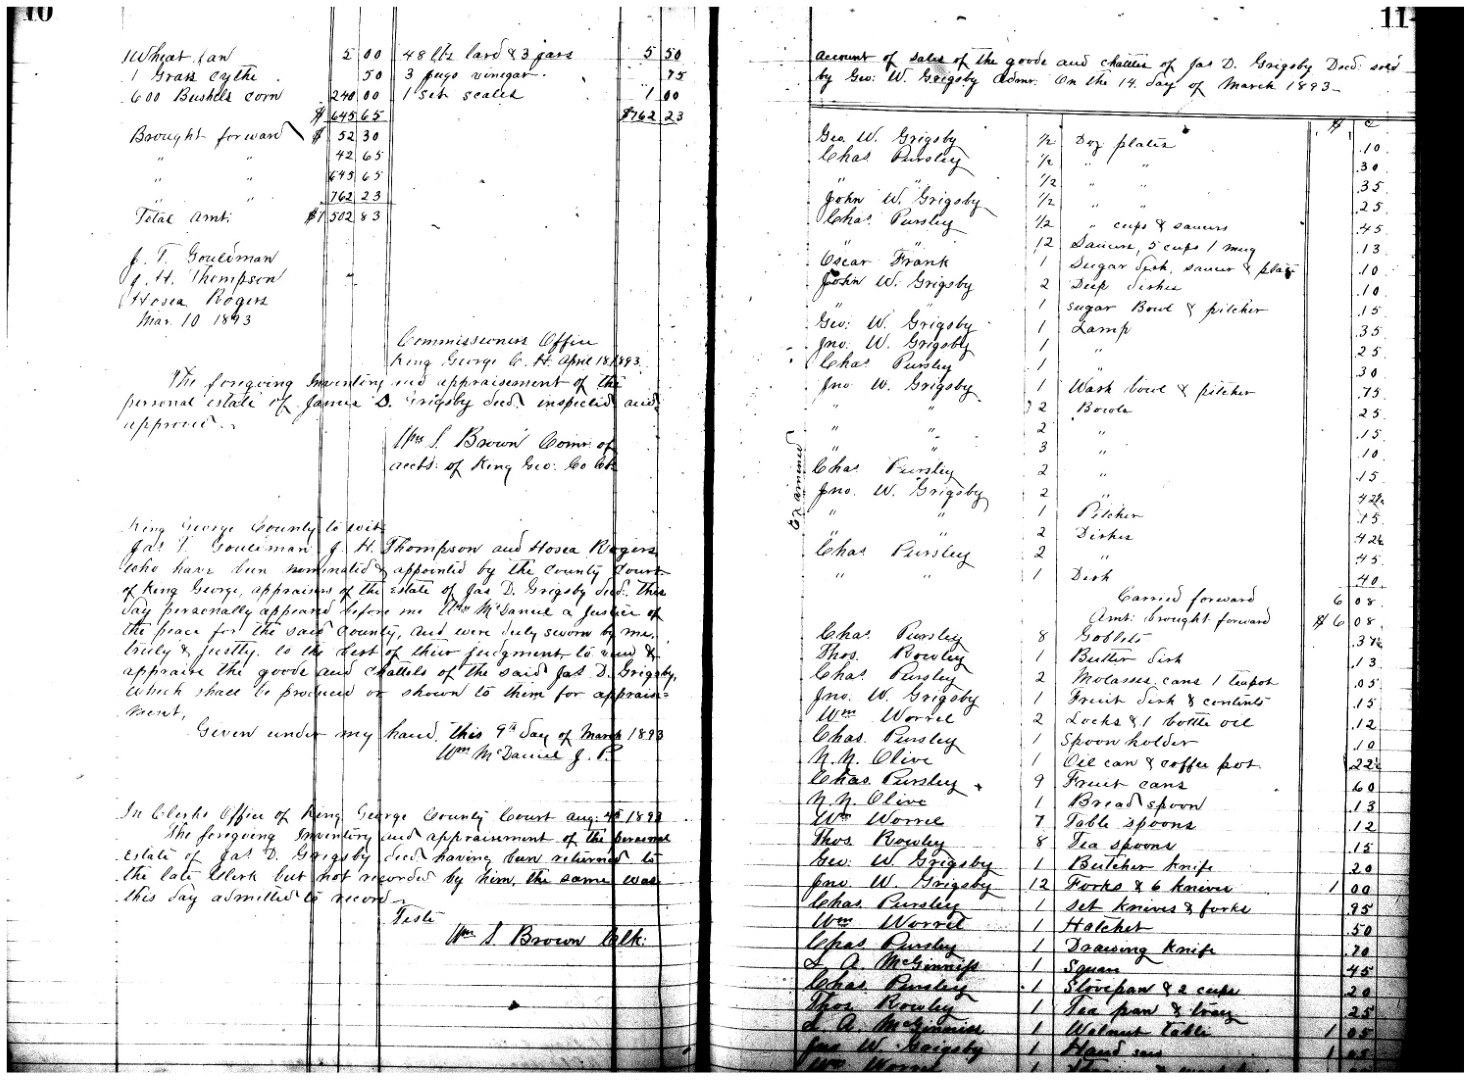 10
1 Wheat fan 5 00 48 lbs lard & 3 jars 5 50
1 Grass cythe 50 3 jugs vinegar 75
600 Bushels corn 240 00 1 set scales 1 00
$ 645 65 $762 23
Brought forward $ 52 30
" " 42 65
" " 645 65
" " 762 23
Total amt. $1 502 83
J. T. Gouldman
J. H. Thompson
Hosea Rogers
Mar. 10 1893
Commissioners Office
King George C. H. April 18, 1893
The foregoing Inventory and appraisement of the
personal estate of James D. Grigsby decd. inspected and
approved.
Wm S. Brown Comr. of
accts. of King Geo. Co Ct.
King George County to wit
Jas T. Gouldman J. H. Thompson and Hosea Rogers
who have been nominated & appointed by the County Court
of King George, appraisers of the Estate of Jas D. Grigsby decd. this
day personally appeared before me Wm McDaniel a Justice of
the peace for the said County, and were duly sworn by me
truly & justly, to the best of their judgment to view &
appraise the goods and chattels of the said Jas D. Grigsby,
which shall be produced or shown to them for appraise=
ment,
Given under my hand, this 9th day of March 1893
Wm McDaniel J. P.
In Clerks Office of King George County Court Aug. 4th 1893
The foregoing Inventory and appraisement of the personal
Estate of Jas D. Grigsby decd having been returned to
the late Clerk but not recorded by him, the same was
this day admitted to record
Teste
Wm S. Brown Clk.
11
Account of sales of the goods and chattels of Jas D. Grigsby Decd. sold
by Geo. W. Grigsby admr. On the 14 day of March 1893
$ c
Geo. W. Grigsby 1/2 Doz plates .10
Chas. Pursley 1/2 " " .30
" " 1/2 " " .35
John W. Grigsby 1/2 " " .25
Chas. Pursley 1/2 " cups & saucers .45
" " 12 Saucers, 5 cups 1 mug .13
Oscar Frank 1 Sugar dish, saucer & plate .10
John W. Grigsby 2 Deep dishes .10
" " 1 Sugar Bowl & pitcher .15
Geo. W. Grigsby 1 Lamp .35
Jno. W. Grigsby 1 " .25
Chas Pursley 1 " .30
Jno. W. Grigsby 1 Wash bowl & pitcher .75
" " 2 Bowls .25
" " 2 " .15
" " 3 " .10
Chas Pursley 2 " .15
Jno. W. Grigsby 2 " .42½
" " 1 Pitcher .15
" " 2 Dishes .42½
Chas Pursley 2 " .45
" " 1 Dish .40
Examined
Carried forward 6 08
Amt. brought forward $6 08
Chas. Pursley 8 Goblets .37½
Thos. Rowley 1 Butter dish .13
Chas. Pursley 2 Molasses cans 1 teapot .05
Jno. W. Grigsby 1 Fruit dish & contents .15
Wm Worrel 2 Locks & 1 bottle oil .12
Chas. Pursley 1 Spoon holder .10
N. N. Olive 1 Oil can & coffee pot .22½
Chas. Pursley 9 Fruit cans .60
N. N. Olive 1 Bread spoon .13
Wm Worrel 7 Table spoons .12
Thos Rowley 8 Tea spoons .15
Geo. W. Grigsby 1 Butcher knife .20
Jno. W. Grigsby 12 Forks & 6 knives 1 00
Chas Pursley 1 Set knives & forks .95
Wm Worrel 1 Hatchet .50
Chas Pursley 1 Drawing knife .70
L. A. McGinniss 1 Square .45
Chas. Pursley 1 Stovepan & 2 cups .20
Thos Rowley 1 Tea pan & tray .25
L. A. McGinniss 1 Walnut table 1 05
Jno. W. Grigsby 1 Hand saw 1
Wm Worrel 1